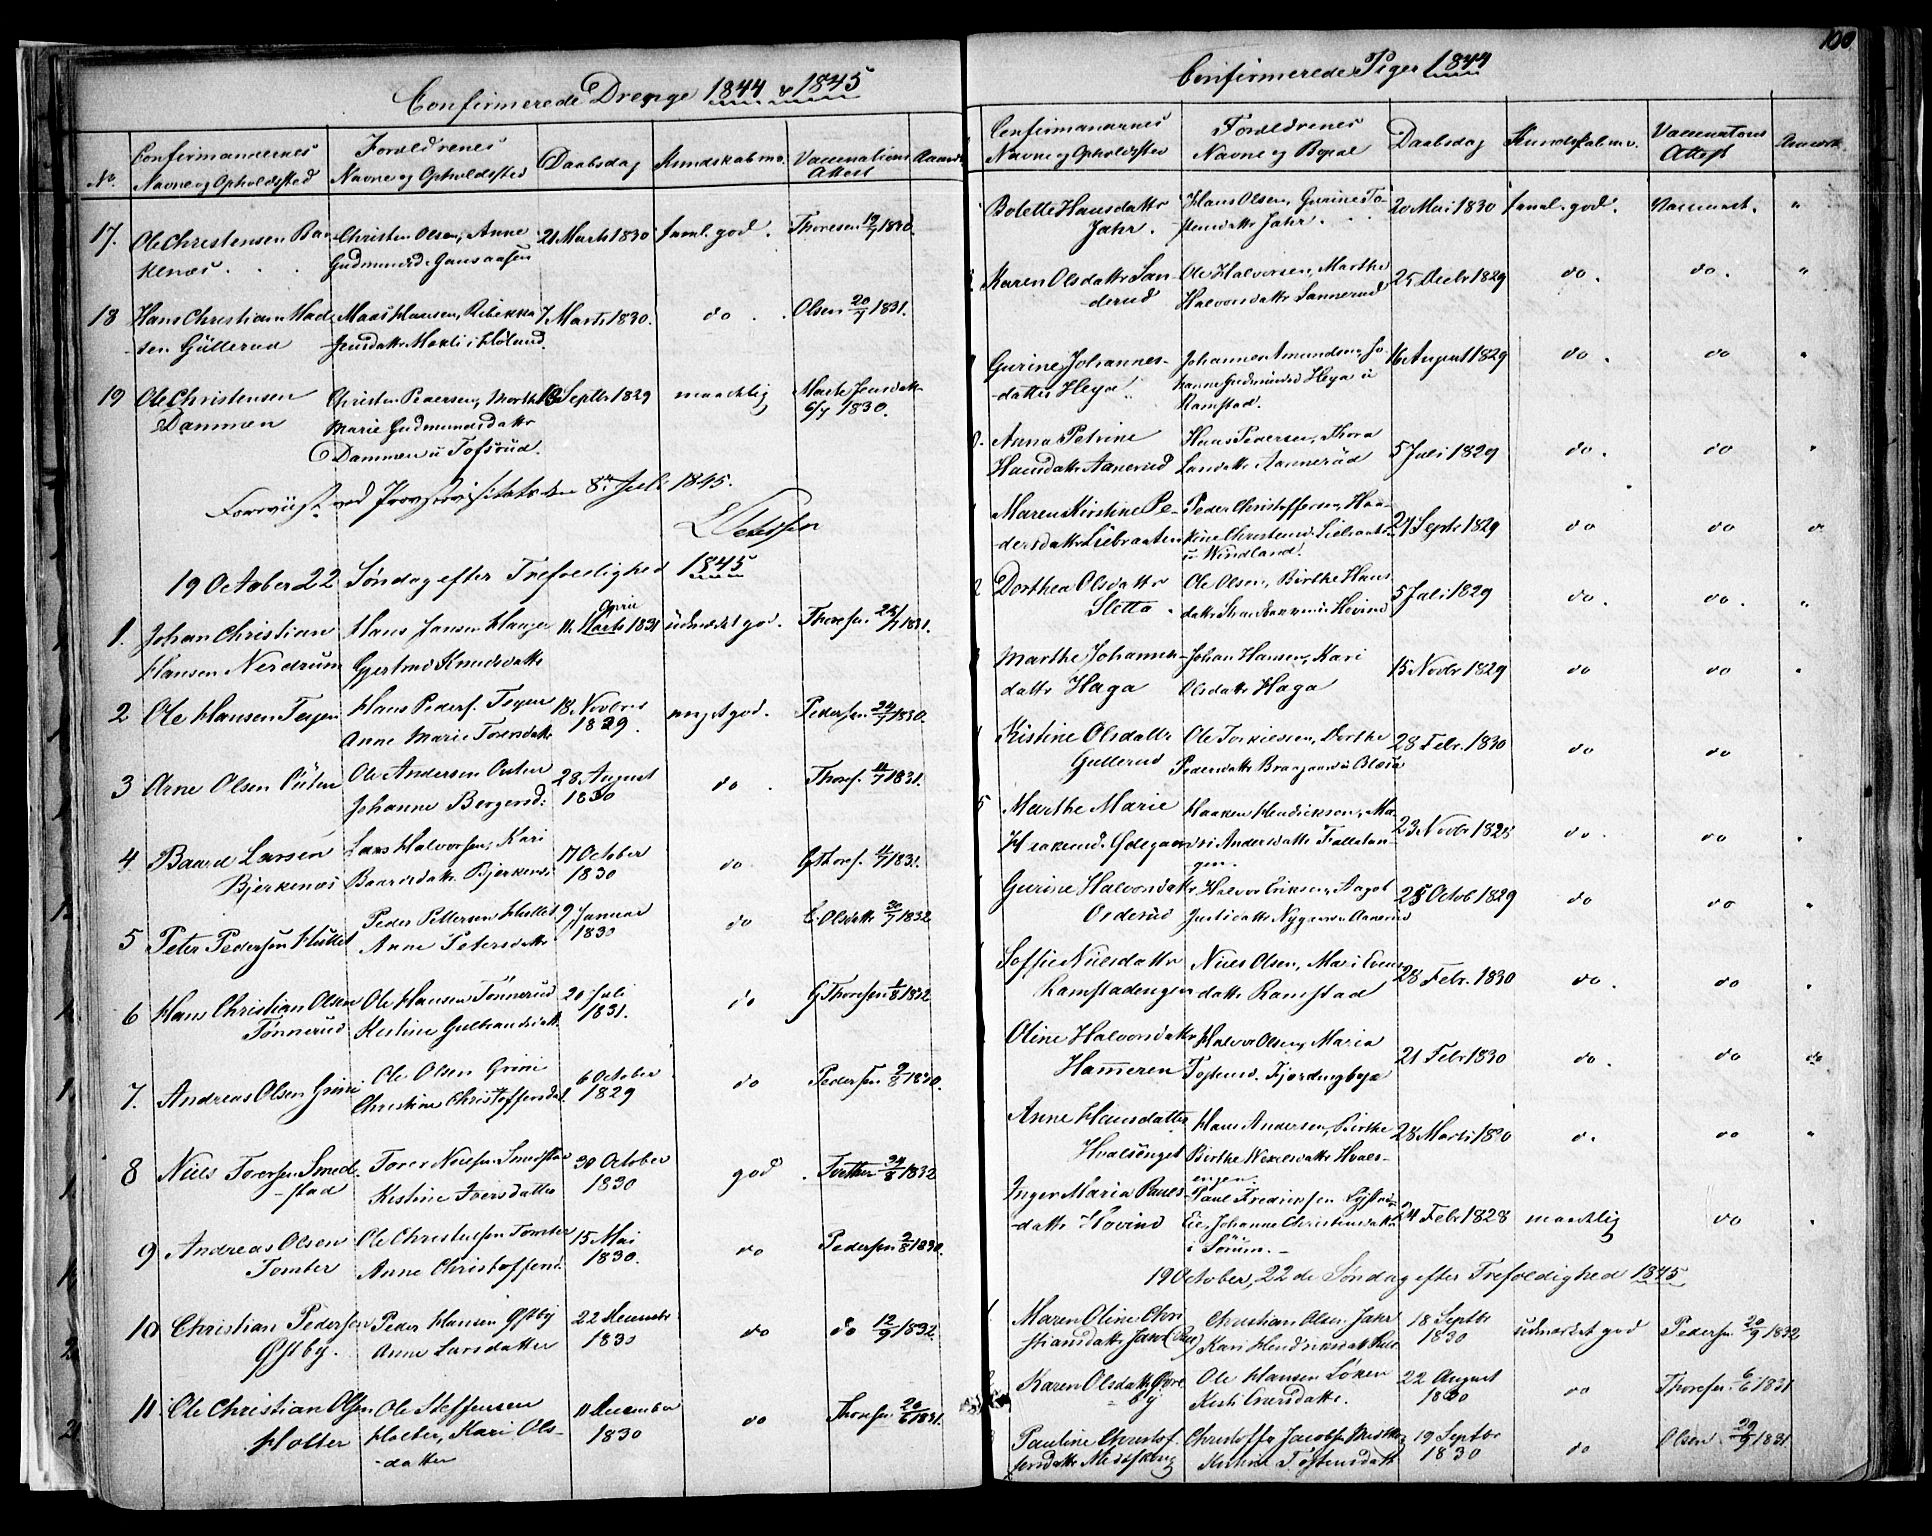 Confirmerede Drenge 1844 & 1845
No.
Confirmandernes
Navne og Opholdssted
Forældrenes
Navne og Opholdssted
Daabsdag
Kundskab m.v.
Vaccinations
Attest
17.
Ole Christensen Bar
kenæs.
Christen Olsen, Anne
Gudmundsd. Gansaasen
21 Marts 1830
taml. god.
Thoresen 19/7 1830.
18
Hans Christian Mad
sen Güllerud
Mads Hansen, Ribekka
Jensdatter Mokli i Høland.
7 Marts 1830.
do
Olsen 20/7 1831.
19
Ole Christensen
Dammen
Christen Pedersen, Marthe
Marie Gudmundsdattr
Dammen u Tofsrud.
13 Septbr 1829
maadelig
Marte Jensdattr
6/7 1830.
Foreviist ved Provstevisitats den 8de Juli 1845.
19 October 22 Søndag efter Trefoldighed 1845
1.
Johan Christian
Hansen Nerdrum
Hans Jansen Hauger
Gjertrud Knudsdattr
April
11 Marts 1831
udmærket god.
Thoresen 25/7 1831.
2
Ole Hansen Teigen
Hans Peders. Teigen
Anne Marie Toresdattr
18 Novbris
1829.
meget god.
Pedersen 24/7 1830.
3
Arne Olsen Østen
Ole Andersen Østen
Johanne Bergersd:
28 August
1830
do
Thores. 11/7 1831.
4
Baard Larsen
Bjerkenæs
Lars Halvorsen, Kari
Baardsdattr Bjerkenæs
17 October
1830
do
G Thores. 11/7 1831.
5
Peter Pedersen Hullet
Peder Pettersen Hullet
Anne Petersdattr
9 Januar
1830
do
E. Olsdattr 30/7 1832
6
Hans Christian Olsen
Tønnerud
Ole Hansen Tønnerud
Kirstine Gulbrandsdatt.
20 Juli
1831.
do
G Thoresen 1/8 1832
7.
Andreas Olsen Grini
Ole Olsen Grini
Christine Christoffersdat.
6 October
1829
do
Pedersen 9/8 1830.
8
Niels Toresen Smed
-stad
Torer Nielsen Smedstad
Kirstine Iversdatter
30 October
1830
god
1832
9
Andreas Olsen
Tomter
Ole Christensen Tomter
Anne Christoffersd.
15 Mai
1830.
do
Pedersen 9/8 1830.
10
Christian Pedersen
Østby.
Peder Hansen Østby
Anne Larsdatter
22 Decembr
1830
do
do 12/9 1832.
11
Ole Christian Olsen
Holter
Ole Steffensen
Holter, Kari Ols-
-datter
11 December
1830
do
Thoresen 20/6 1831.
100
Confirmerede Piger 1844
Confirmandernes
Navne og Opholdsted
Forældrenes
Navne og Bopæl
Daabsdag
Kundskab m.v.
Vaccinations
Attest
Anmærk
Bolette Hansdattr
Jahr.
Hans Olsen, Gurine To
stensdattr Jahr.
20 Mai 1830
taml. god.
Vaccineret.
"
Karen Olsdattr San-
derud
Ole Halvorsen, Marthe
Halvorsdattr Sannerud
25 Decbr 1829
do.
do.
"
Gurine Johannes-
datter Heya.
Johannes Amundsen, Jo
hanne Gudmundsd Heya u
Ramstad.
16 August 1829
do.
do
"
Anna Petrine
Hansdattr Aanerud
Hans Pedersen, Thora
Larsdattr Aannerud
5 Juli 1829
do.
do
"
Maren Kirstine Pe-
dersdattr Liebraaten
Peder Christoffersen, Haa-
kine Christensd. Liebraaten
u Windland.
27 Septbr 1829
do
do
do
Dorthea Olsdattr
Sletta.
Ole Olsen, Birthe Hans
dattr Strandbakken u Hovind
5 Juli 1829
do.
do.
"
Marthe Johannes-
dattr Haga
Johan Hansen, Kari
Olsdattr Haga
15 Novbr 1829
do
do
"
Kistine Olsdattr
Gullerud
Ole Torkilssen, Dorthe
Pedersdattr
28 Febr. 1830
do
do
5
Marthe Marie
Haakensd. Ødegaard
Haaken Hendriksen, Ma-
ri Andersdattr Tallestan-
gen.
23 Novbr 1828
do.
do
Gurine Halvorsdattr
Orderud
Halvor Eriksen, Aagot
Justsdattr Nygaard u Aanerud
25 Octob 1829
do
do
"
Soffie Nielsdattr
Ramstadengen
Niels Olsen, Mari Evens
datte Ramstad
28 Febr. 1830
do
do
Oline Halvorsdattr
Hameren
Halvor Olsen, Maria
Tostensd. Fjordingbye
21 Febr 1830
do.
do
do
Anne Hansdatter
Hvalsenget
Hans Andersen, Birthe
Birthe Nielsdattr Hvals-
engen.
28 Marts 1830
do
do
"
Inger Maria Pauls-
-dattr Hovind
Paul Fredriksen Lystad
Eie, Johanne Christiansdattr
i Sørum. -
24 Febr 1828
maadelig
do
19 October, 22 de Søndag efter Trefoldighed 1845
Maren Oline Chri
stiansdattr Jahr
Christian Olsen Jahr
Kari Hendriksdatt
18 Septbr
1830
udmærket god
Pedersen 20/9 1832
Karen Olsdattr Øvre
by
Ole Hansen Løken
Kirsti Evensdatter.
22 August
1830
do
Thoresen 6/6 1831
Pauline Christof
fersdattr Midtskoug
Christoffer Jacobsen Midtskoug
Kirstine Tostensdatt
19 Septbr
1830
do
Olsen 29/9 1831